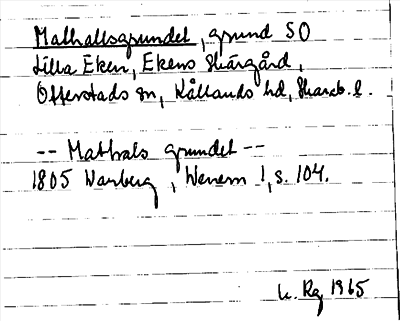 Malhallsgrundet, grund SO
Lilla Eken, Ekens Skärgård,
Otterstads sn, Kållands hd, Skarab. l.
-- Malhals grundet --
1805 Warberg, Wenern 1, s. 104.
Rg 1965